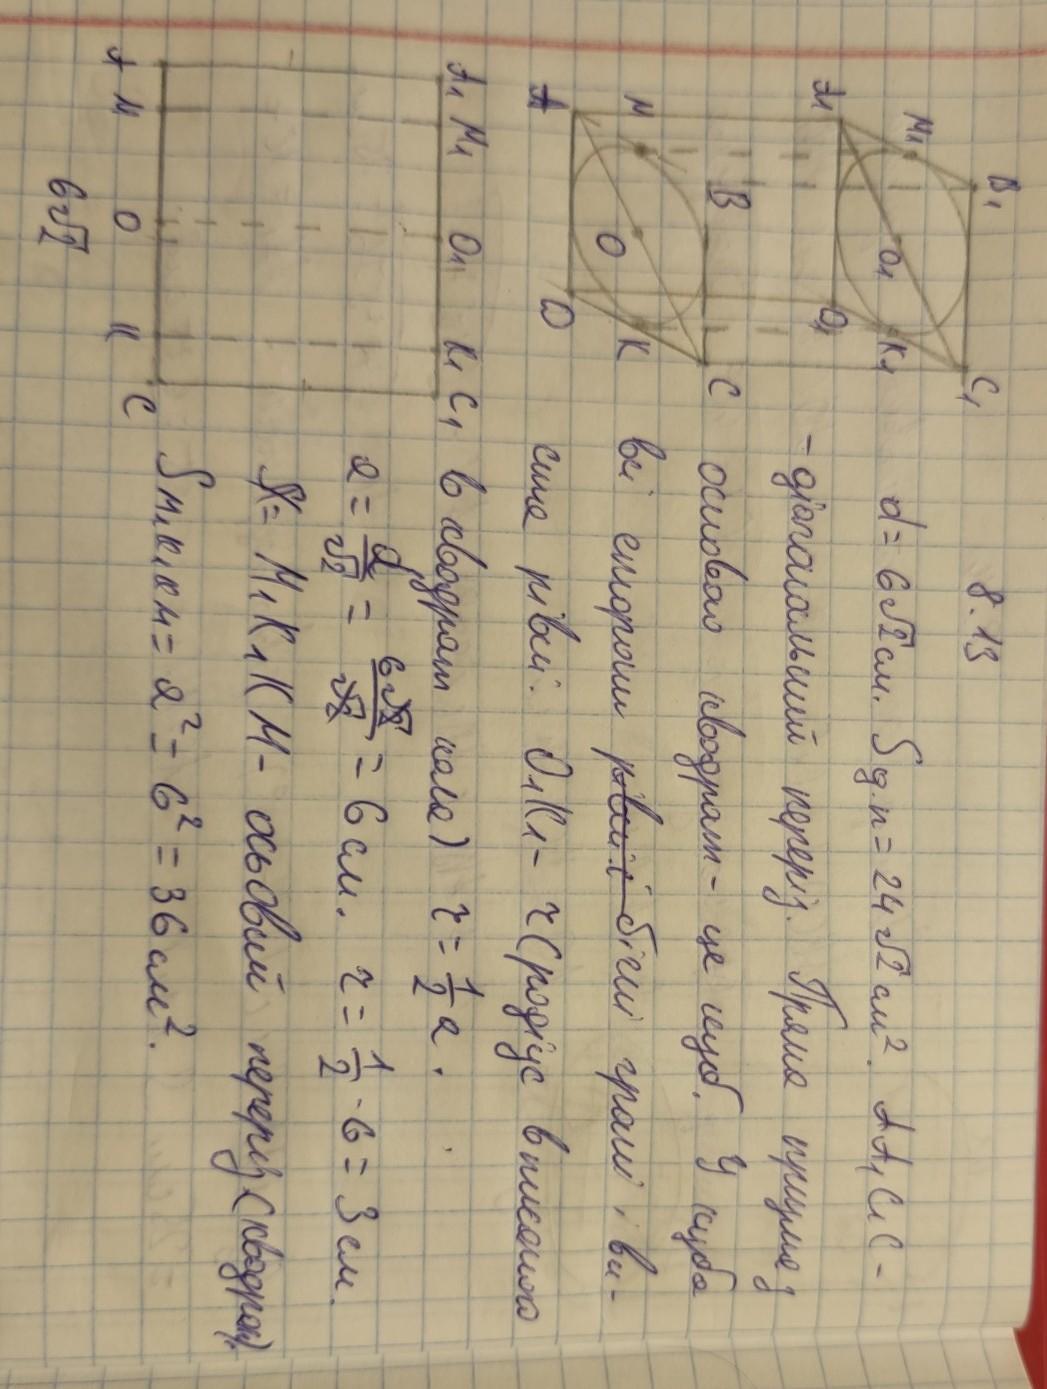 8.13
d = 6√2 см. Sд.п = 24√2 см². AA₁C₁C -
- діагональний переріз. Пряма призма з
основою квадрат - це куб. У куба
всі сторони рівні і бічні грані і ви-
сота рівні. O₁K₁ - r (радіус вписаного
в квадрат кола) r = 1/2 a.
a = d/√2 = 6√2/√2 = 6 см. r = 1/2 · 6 = 3 см.
M₁K₁KM - осьовий переріз (квадрат)
S M₁K₁KM = a² = 6² = 36 см².
B₁ C₁
M₁ O₁ K₁
A₁ D₁
B C
M O K
A D
A₁ M₁ O₁ K₁ C₁
A M O K C
6√2